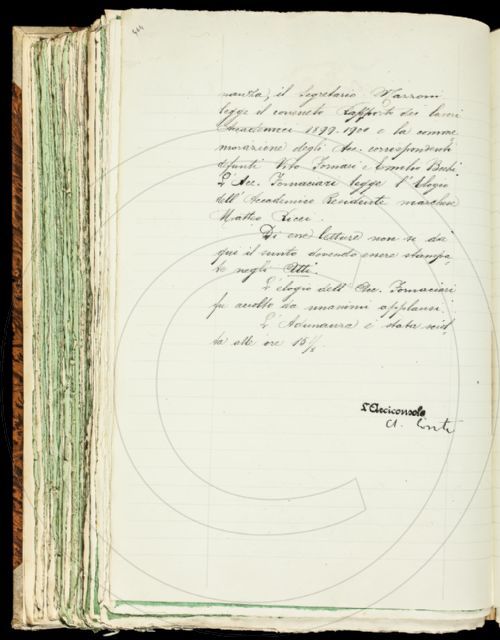 414
nanza, il Segretario Mazzoni
legge il consueto Rapporto dei lavori
Accademici 1899-1900 e la comme
morazione degli Acc. corrispondenti
defunti Vito Fornari e Emilio Bechi.
L'Acc. Fornaciari legge l'Elogio
dell'Accademico Residente marchese
Matteo Ricci.
Di esse letture non si dà
qui il sunto dovendo essere stampa
te negli Atti.
L'elogio dell'Acc. Fornaciari
fu accolto da unanimi applausi.
L'Adunanza è stata sciol
ta alle ore 15 ½.
L'Arciconsolo
A. Conti